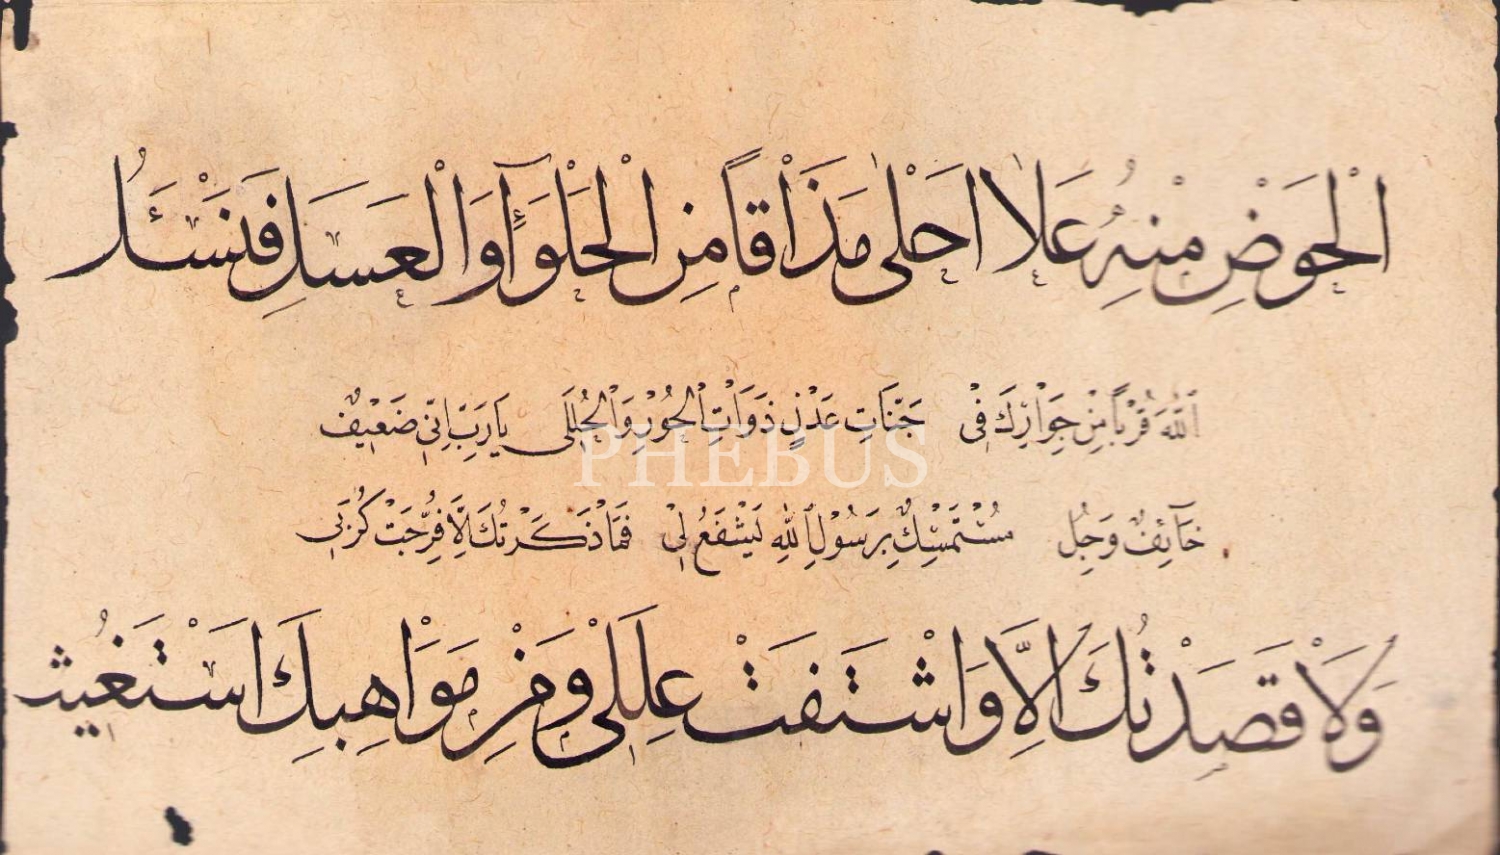 الْحَوْضِ مِنْهُ عَلَا اَحْلٰى مَذَاقًا مِنَ الْحَلْوَآءِ وَالْعَسَلِ فَنَسْئَلُ
اللّٰهَ قُرْبًا مِنْ جَوَارِكَ فِىْ جَنَّاتِ عَدْنٍ ذَوَاتِ الْحُوْرِ وَالْحُلَلِى يَارَبِّ اِنِّىْ ضَعِيْفٌ
خَآئِفٌ وَجِلٌ مُسْتَمْسِكٌ بِرَسُوْلِ اللّٰهِ يَشْفَعُ لِىْ فَمَا ذَكَرْتُكَ اِلَّا فُرِّجَتْ كُرَبِى
وَلَا قَصَدْتُكَ اِلَّا وَاشْتَفَتْ عِلَلِىْ وَمِنْ مَوَاهِبِكَ اسْتَغِيْثُ
PHEBUS